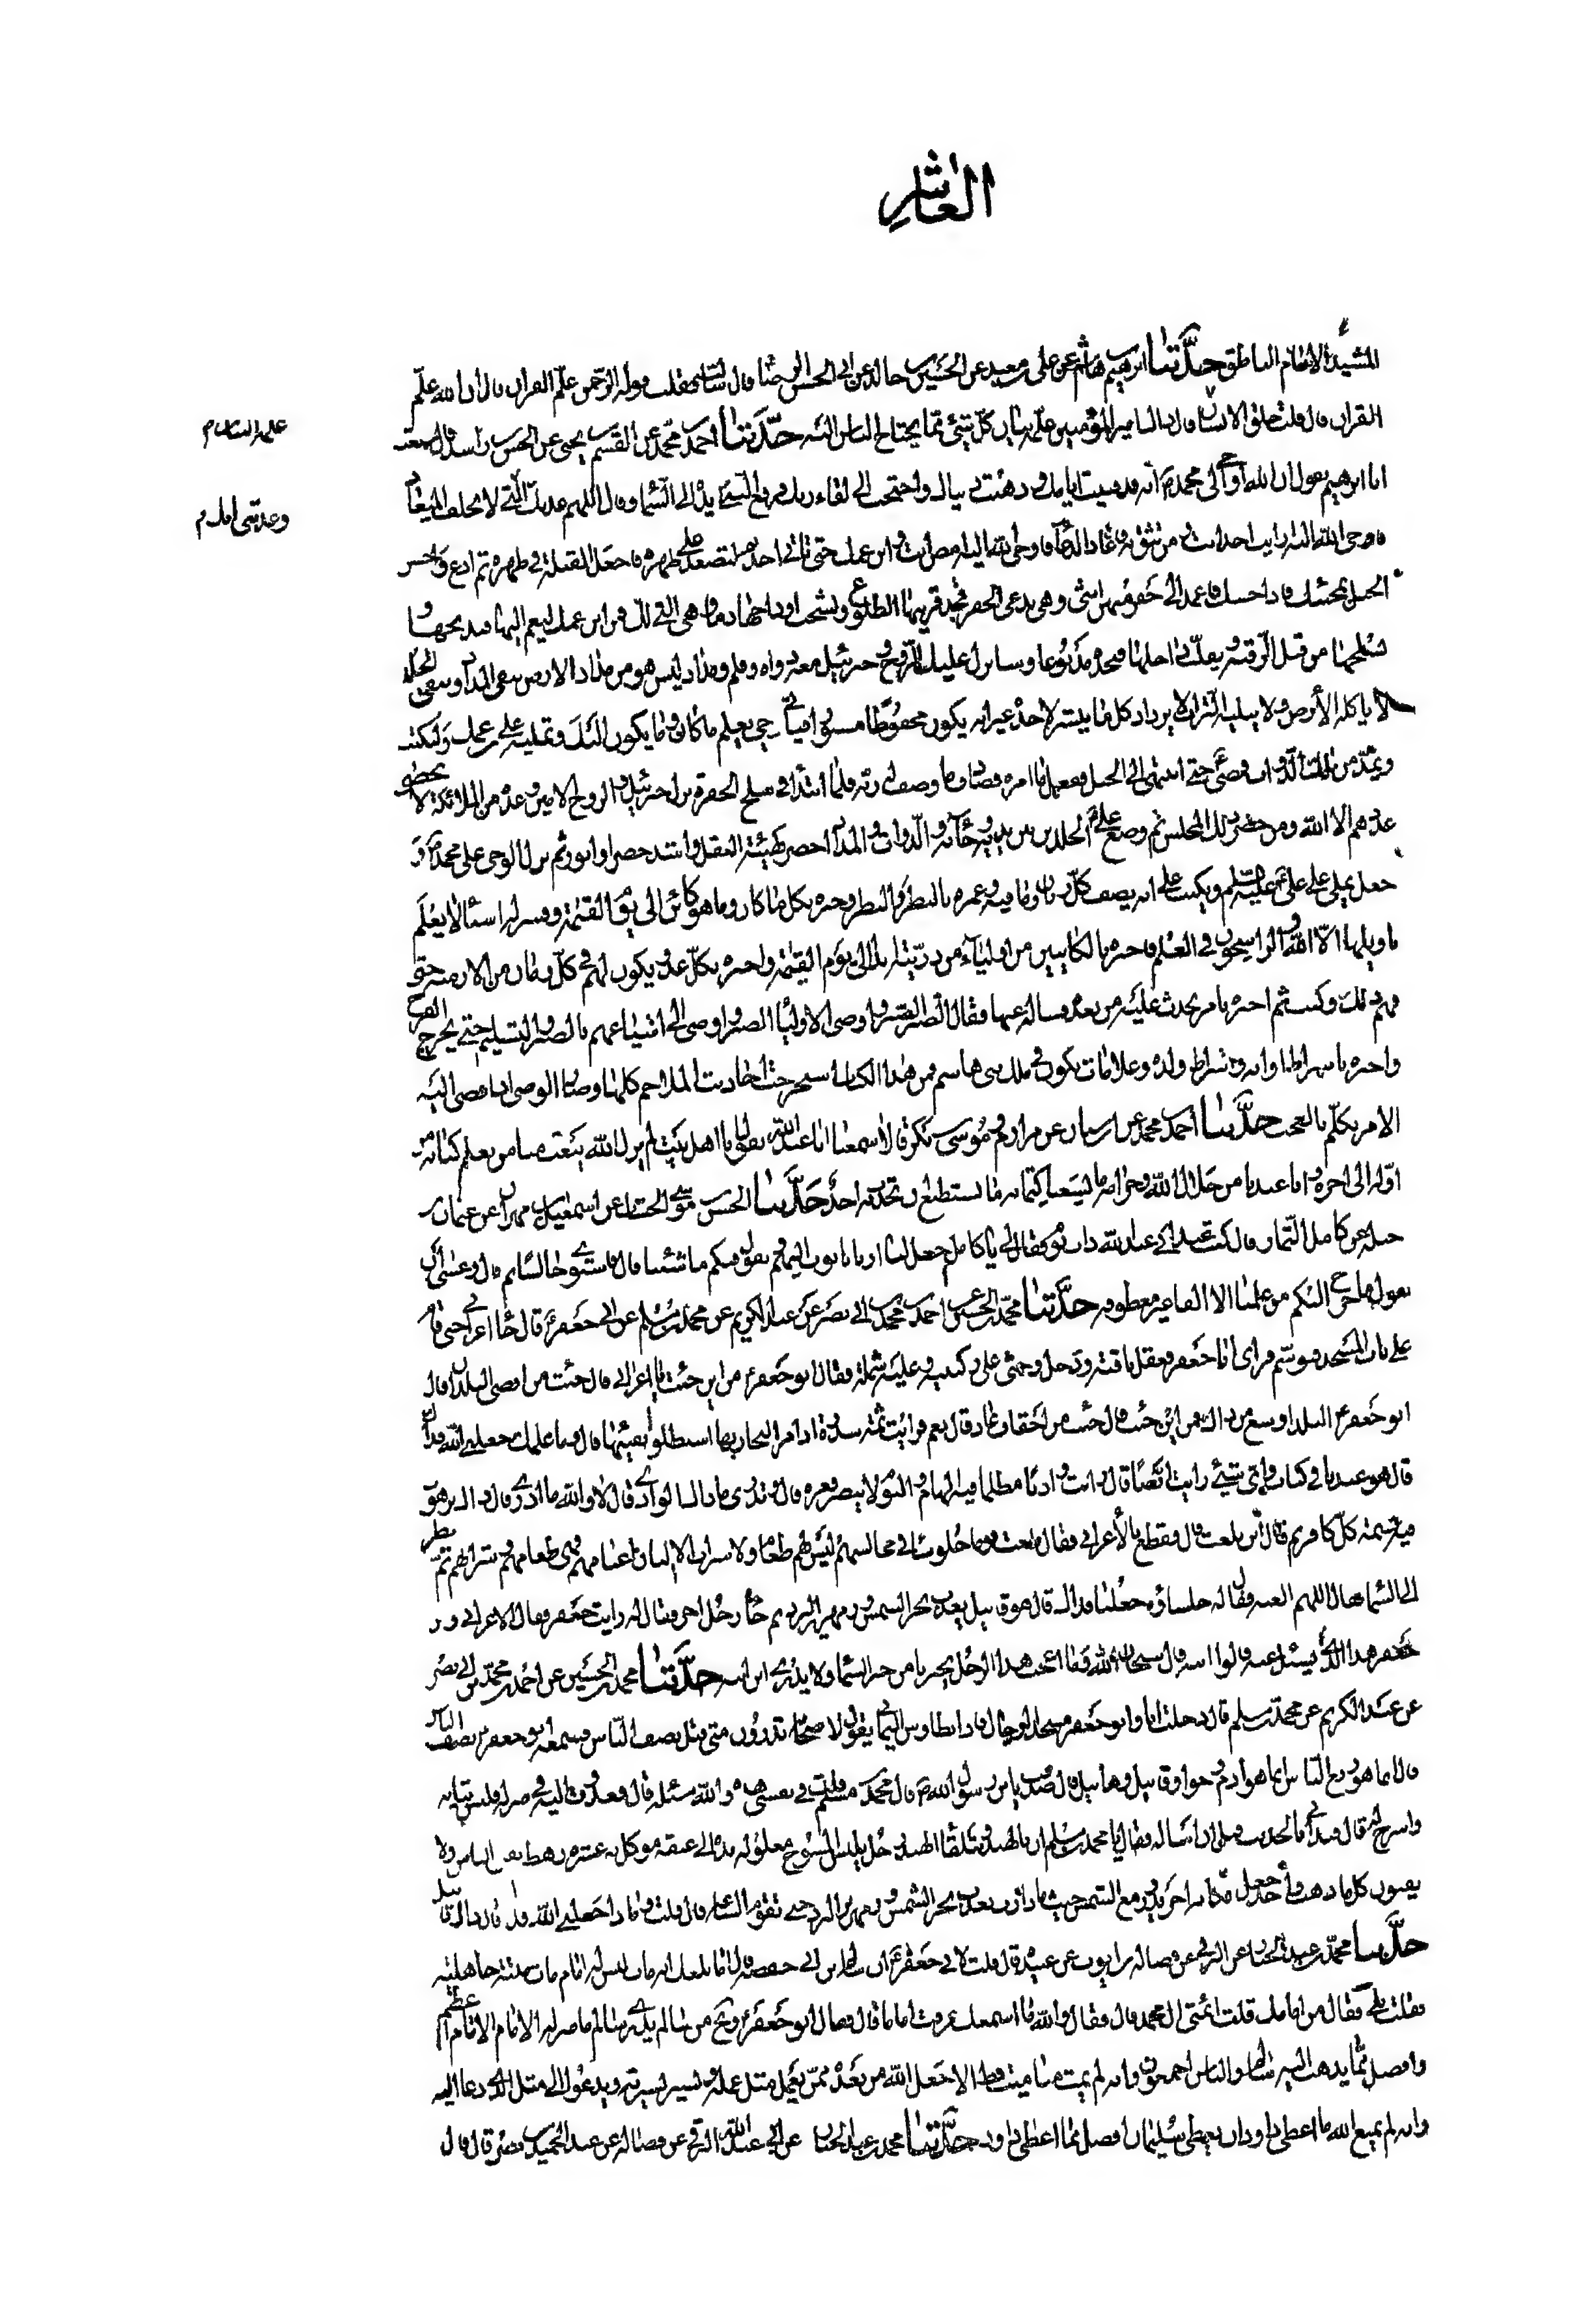 العاشر
المشيد والامام الناطق حدثنا ابرهيم بن هاشم عن علي بن معبد عن الحسين بن خالد عن ابي الحسن الرضا قال سالته فقلت قوله الرحمن علم القران قال ان الله علم
عليه السلام
القران قال قلت خلق الانسان قال ذاك امير المؤمنين علمه بيان كل شيء مما يحتاج الناس اليه حدثنا احمد بن محمد عن القسم بن يحيى عن الحسن بن راشد قال سمعت
ابا ابرهيم يقول ان الله اوحى الى محمد انه قد فنيت ايامك وذهبت دنياك واحتجت الى لقاء ربك فرفع النبي يده الى السما وقال اللهم عدتك التي لا تخلف الميعاد
وعدتني انك
فاوحى الله اليه ان ايت احدا انت ومن تثق به فاعاد الدعا فاوحى الله اليه امض انت وابن عمك حتى تاتي احدا ثم لتصعد على ظهره فاجعل القبلة في ظهرك ثم ادع
الجبل تجبك فاذا فاعمد الى جفرة منهن انثى وهي تدعى الجفرة تجد قرنيها الطلوع وتشخب اوداجها دما وهي التي لك فمر ابن عمك ليقم اليها فيذبحها و
يسلخها من قبل الرقبة ويقلب داخلها فتجده مدبوغا وسانزل عليك الروح وجبرئيل معه دواة وقلم ومداد ليس هو من مداد الارض يبقى المداد ويبقى الجلد
لا ياكله الأرض ولا يبليه التراب لا يزداد كلما ينشر الا جدة غير انه يكون محفوظا مستورا فياتي وحي بعلم ما كان وما يكون اليك وتمليه على ابن عمك وليكتب
ويمد من تلك الدواة فمضى حتى انتهى الى الجبل ففعل ما امره فصادف ما وصف له ربه فلما ابتدا في سلخ الجفرة نزل جبرئيل والروح الامين وعدة من الملائكة لا يحصى
عددهم الا الله ومن حضر ذلك المجلس ثم وضع علي الجلد بين يديه وجاءته الدواة والمداد اخضر كهيئة البقل واشد خضرا وانور ثم نزل الوحي على محمد و
جعل يملي على علي عليه السلم ويكتب علي انه يصف كل زمان وما فيه وغمزه بالنظر والنظر وخبره بكل ما كان وما هو كائن الى يوم القيمة وفسر له اشيا لا يعلم
تاويلها الا الله والراسخون في العلم فاخبره بالكائنين من اولياء الله من ذريته ابدا الى يوم القيمة واخبره بكل عدو يكون لهم في كل زمان من الازمنة حتى
فهم ذلك وكتب ثم اخبره بامر يحدث عليه من بعده فساله عنها فقال الصبر الصبر واوصى الاوليا بالصبر واوصى الى اشياعهم بالصبر والتسليم حتى يخرج الفرج
واخبره باشراط اوانه واشراط ولده وعلامات تكون في ملك بني هاشم فمن هذا الكتاب استخرجت احاديث الملاحم كلها وصار الوصي اذا افضى اليه
الامر تكلم بالعجب حدثنا احمد بن محمد عن ابن سنان عن مرازم وموسى بن بكر قالا سمعنا ابا عبد الله يقول انا اهل بيت لم يزل الله يبعث منا من يعلم كتابه من
اوله الى اخره وان عندنا من حلال الله وحرامه ما يسعنا كتمانه ما نستطيع ان نحدث به احدا حدثنا الحسن بن موسى الخشاب عن اسمعيل بن مهران عن عثمان بن
جبلة عن كامل التمار قال كنت عند ابي عبد الله ذات يوم فقال لي يا كامل اجعل لنا ربا نؤب اليه ثم نقول فيكم ما شئنا قال فاستوى جالسا ثم قال وعسى ان
نقول ما خرج اليكم من علمنا الا الفا غير معطوفة حدثنا محمد بن الحسين عن احمد بن محمد بن ابي نصر عن عبد الكريم عن محمد بن مسلم عن ابي جعفر قال جا اعرابي حتى قام
على باب المسجد فتوسم فراى ابا جعفر فعقل ناقته ودخل وجثى على ركبتيه وعليه شملة فقال ابو جعفر من اين جئت يا اعرابي قال جئت من اقصى البلدان قال
ابو جعفر البلدان اوسع من ذاك فمن اين جئت قال جئت من احقاف عاد قال نعم فرايت ثمة سدرة اذا مر التجار بها استظلوا بفيئها قال وما علمك جعلني الله فداك
قال هو عندنا في كتاب واي شيء رايت ايضا قال رايت واديا مظلما فيه الهام والبوم لا يبصر قعره قال وتدري ما ذاك الوادي قال لا والله ما ادري قال ذاك برهوت
فيه نسمة كل كافر ثم قال اين بلغت قال فقطع بالأعرابي فقال بلغت قوما جلوسا في مجالسهم ليس لهم طعام ولا شراب الا البان اغنامهم فهي طعامهم وشرابهم ثم نظر
الى السما فقال اللهم العنه فقال له جلساؤه جعلنا فداك قال هو قابيل يعذب بحر الشمس وزمهرير البرد ثم جا رجل اخر فقال له رايت جعفرا فقال الاعرابي ومن
جعفر هذا الذي يسئل عنه قالوا ابنه قال سبحان الله وما اعجب هذا الرجل يخبرنا من خبر السما ولا يدري اين ابنه حدثنا محمد بن الحسين عن احمد بن محمد بن ابي نصر
عن عبد الكريم عن محمد بن مسلم قال دخلت انا وابو جعفر مسجد الرسول فاذا طاوس اليماني يقول لاصحابه تدرون متى قتل نصف الناس فسمعه ابو جعفر نصف الناس
قال انما هو ربع الناس انما هو ادم وحوا وقابيل وهابيل قال صدقت يا بن رسول الله قال محمد بن مسلم قلت في نفسي هذه والله مسئلة قال فغدوت اليه في منزله فلبس ثيابه
واسرج له قال فبداني بالحديث قبل ان اساله فقال يا محمد بن مسلم ان بالهند او تلقاء الهند رجل يلبس المسوح مغلولة يده الى عنقه موكل به عشرة رهط الناس ولا
يفنون كلما ذهب واحد جعل مكانه اخر يدور مع الشمس حيث ما دارت يعذب بحر الشمس وزمهرير البرد حتى تقوم الساعة قال قلت ومن ذا جعلني الله فداك قال ذاك قابيل
حدثنا محمد بن عبد الجبار عن البرقي عن فضالة بن ايوب عن عبيدة قال قلت لابي جعفر ان سالم بن ابي حفصة قال اما بلغك انه من مات ليس له امام مات ميتة جاهلية
فقلت بلى فقال من امامك قلت ائمتي ال محمد قال فقال والله ما اسمعك عرفت اماما قال فقال ابو جعفر ويح من سالم يدري سالم ما منزلة الامام الامام اعظم
وافضل مما يذهب اليه سالم والناس اجمعون وانه لم يمت منا ميت قط الا جعل الله من بعده من يعمل مثل عمله ويسير بسيرته ويدعو الى مثل الذي دعا اليه
وانه لم يمنع الله ما اعطى داود ان يعطي سليمان افضل مما اعطى داود حدثنا محمد بن عبد الجبار عن ابي عبد الله البرقي عن فضالة عن عبد الحميد بن نصر قال قال